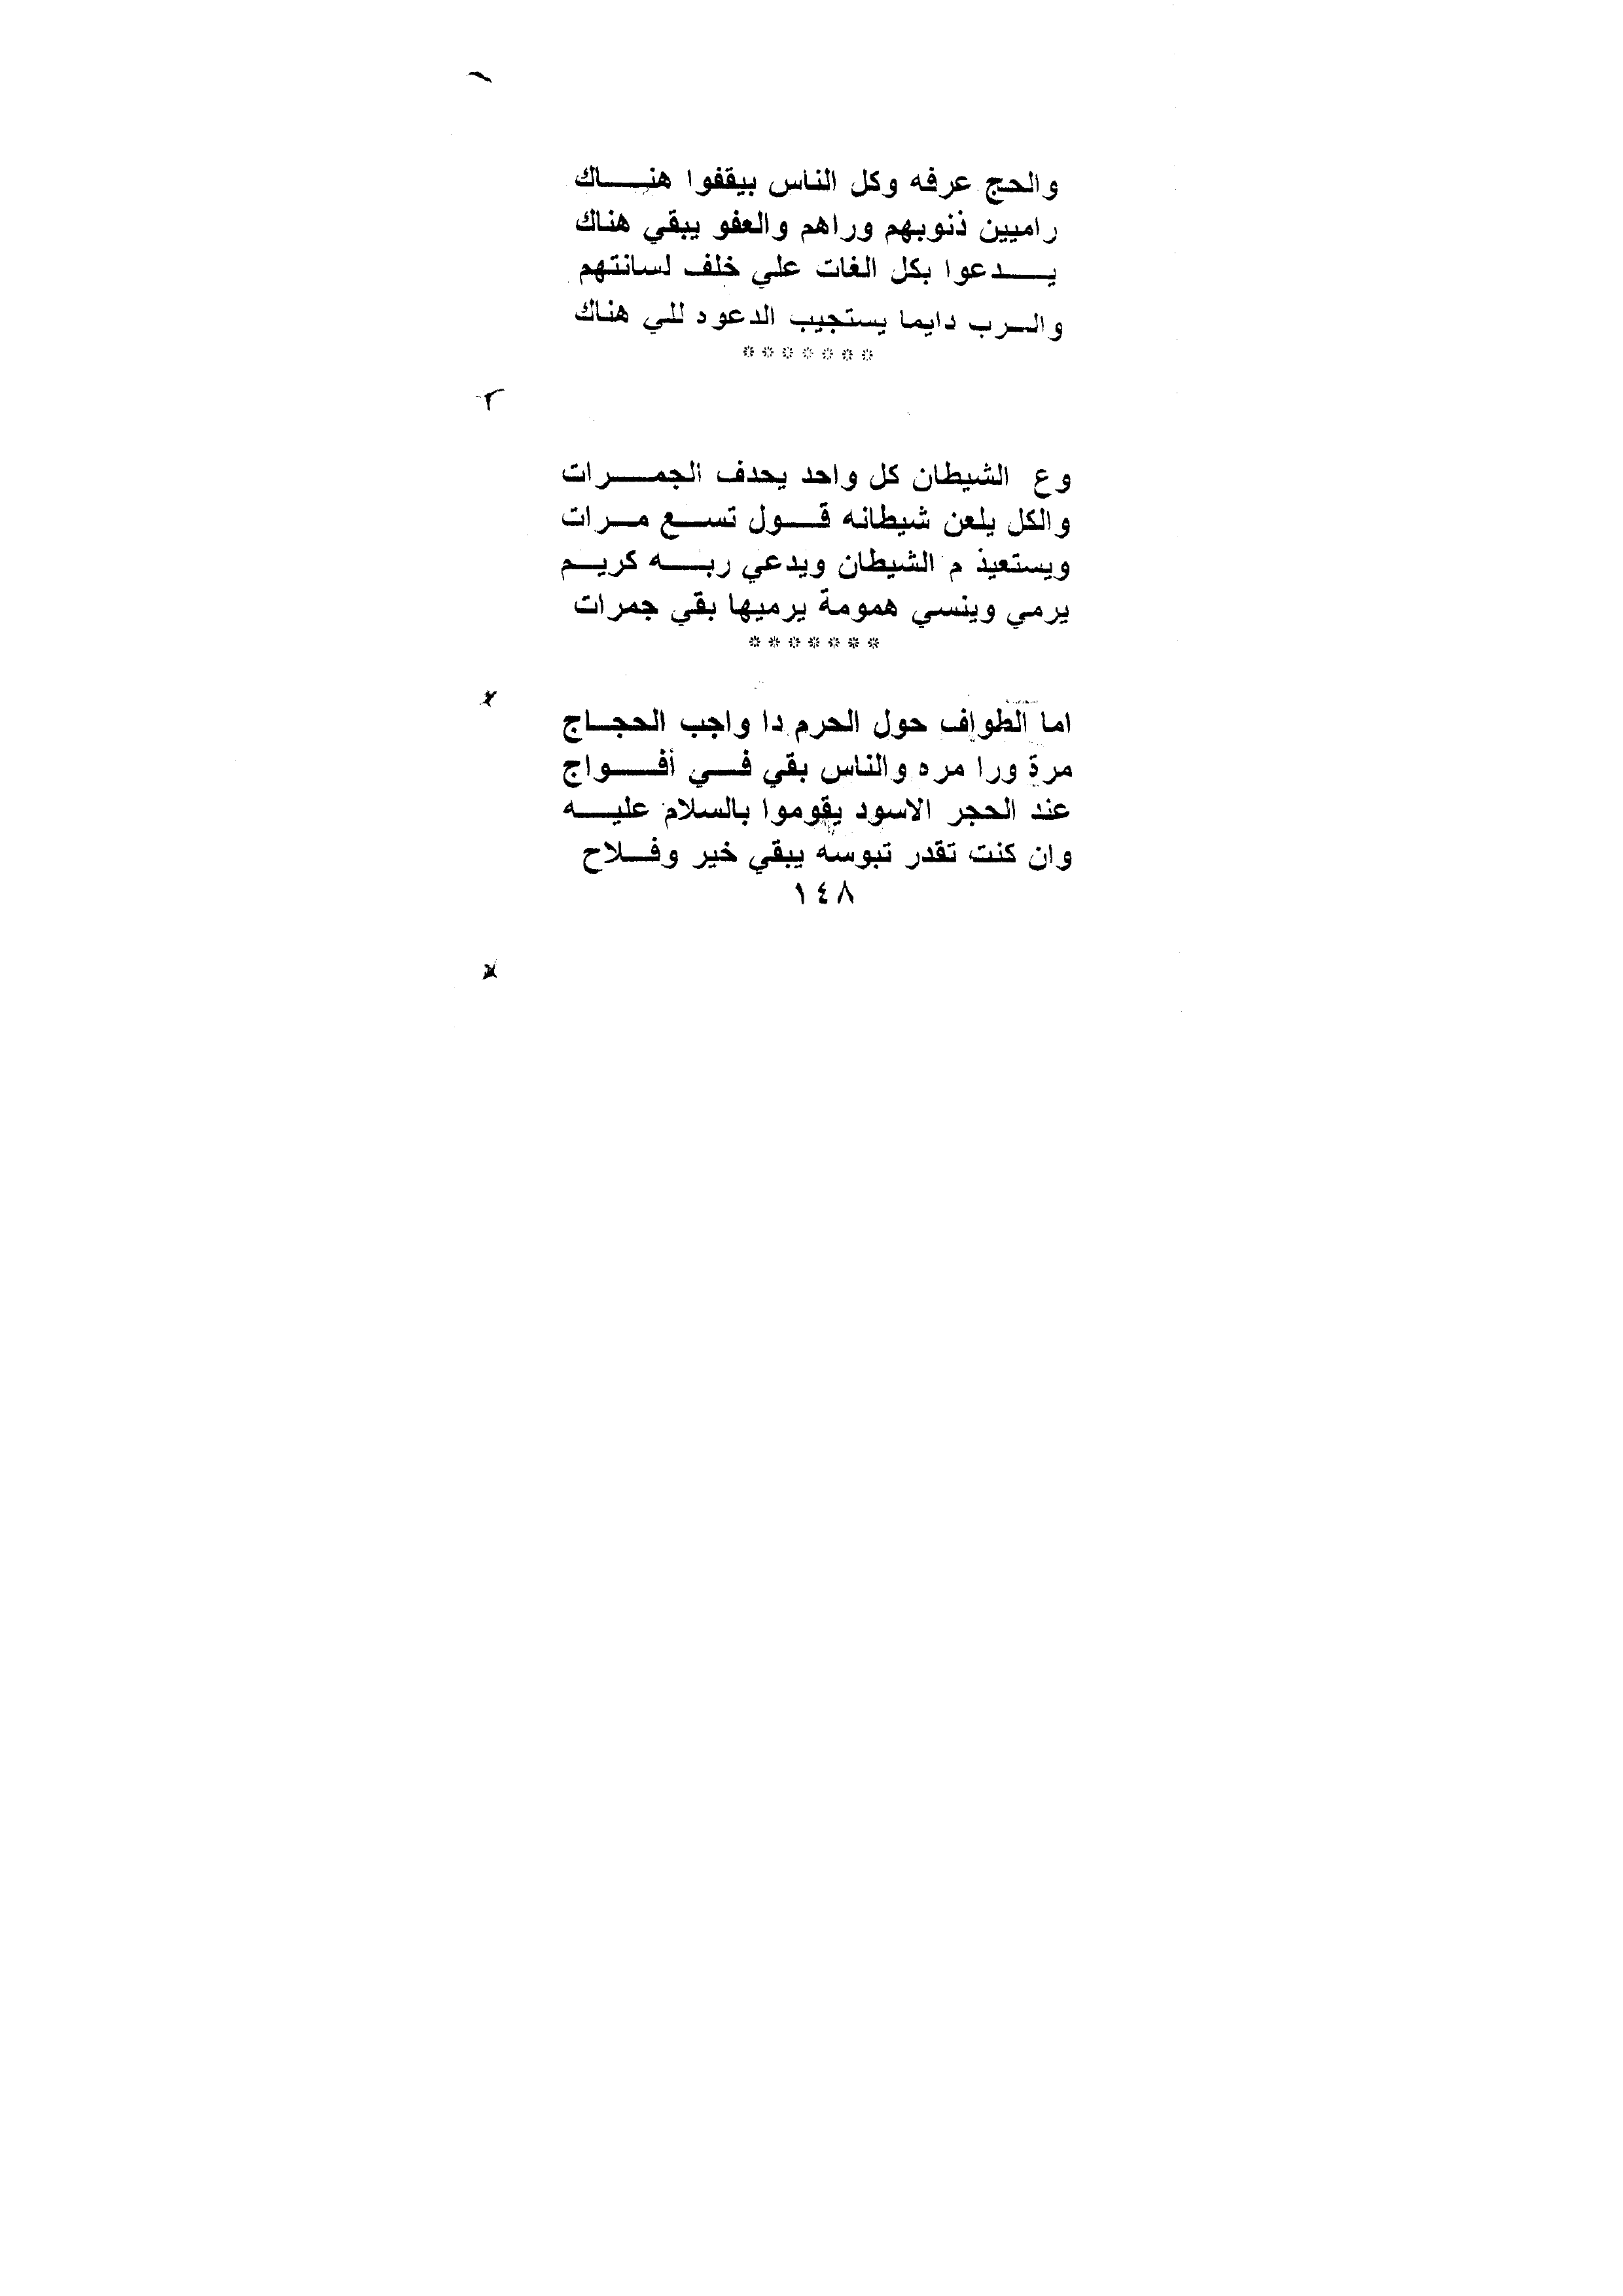 والحج عرفه وكل الناس بيقفوا هنــــاك
راميين ذنوبهم وراهم والعفو يبقي هناك
يــــدعوا بكل الغات علي خلف لسانتهم
والــرب دايما يستجيب الدعوه للي هناك
*******
٢
وع الشيطان كل واحد يحدف الجمــــرات
والكل يلعن شيطانه قــــول تســـع مـــرات
ويستعيذ م الشيطان ويدعي ربــــه كريـــم
يرمي وينسي همومة يرميها بقي جمرات
*******
اما الطواف حول الحرم دا واجب الحجــاج
مرة ورا مره والناس بقي فـــي أفــــواج
عند الحجر الاسود يقوموا بالسلام عليـــه
وان كنت تقدر تبوسه يبقي خير وفـــلاح
١٤٨